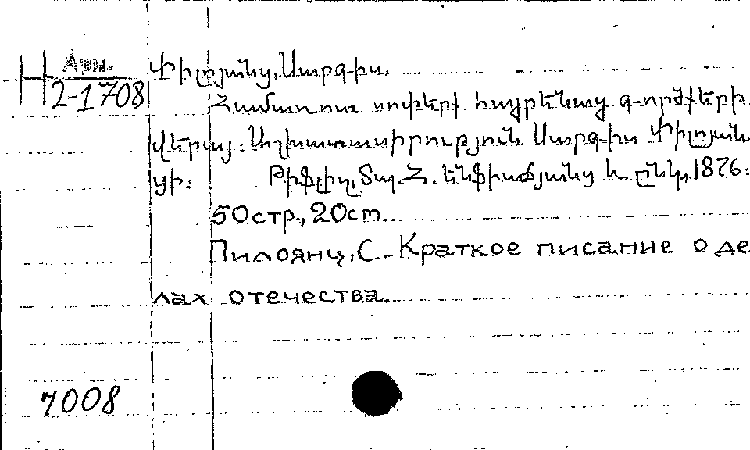 Арм.
Н 2-1708
Փիլոյանց, Սարգիս.
Համառօտ տոփերք հայրենեաց գործերի
վերայ. Աշխատասիրություն Սարգիս Փիլոյան
ցի. Թիֆլիզ, Տպ. Հ. Էնֆիաճյանց և ընկ., 1876.
50стр., 20см.
Пилоянц, С. Краткое писание о де
лах отечества.
7008